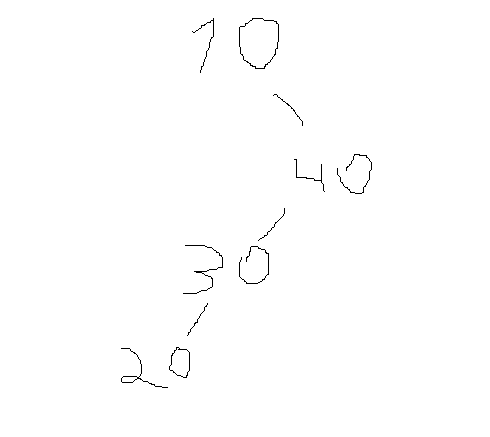 10
40
30
20